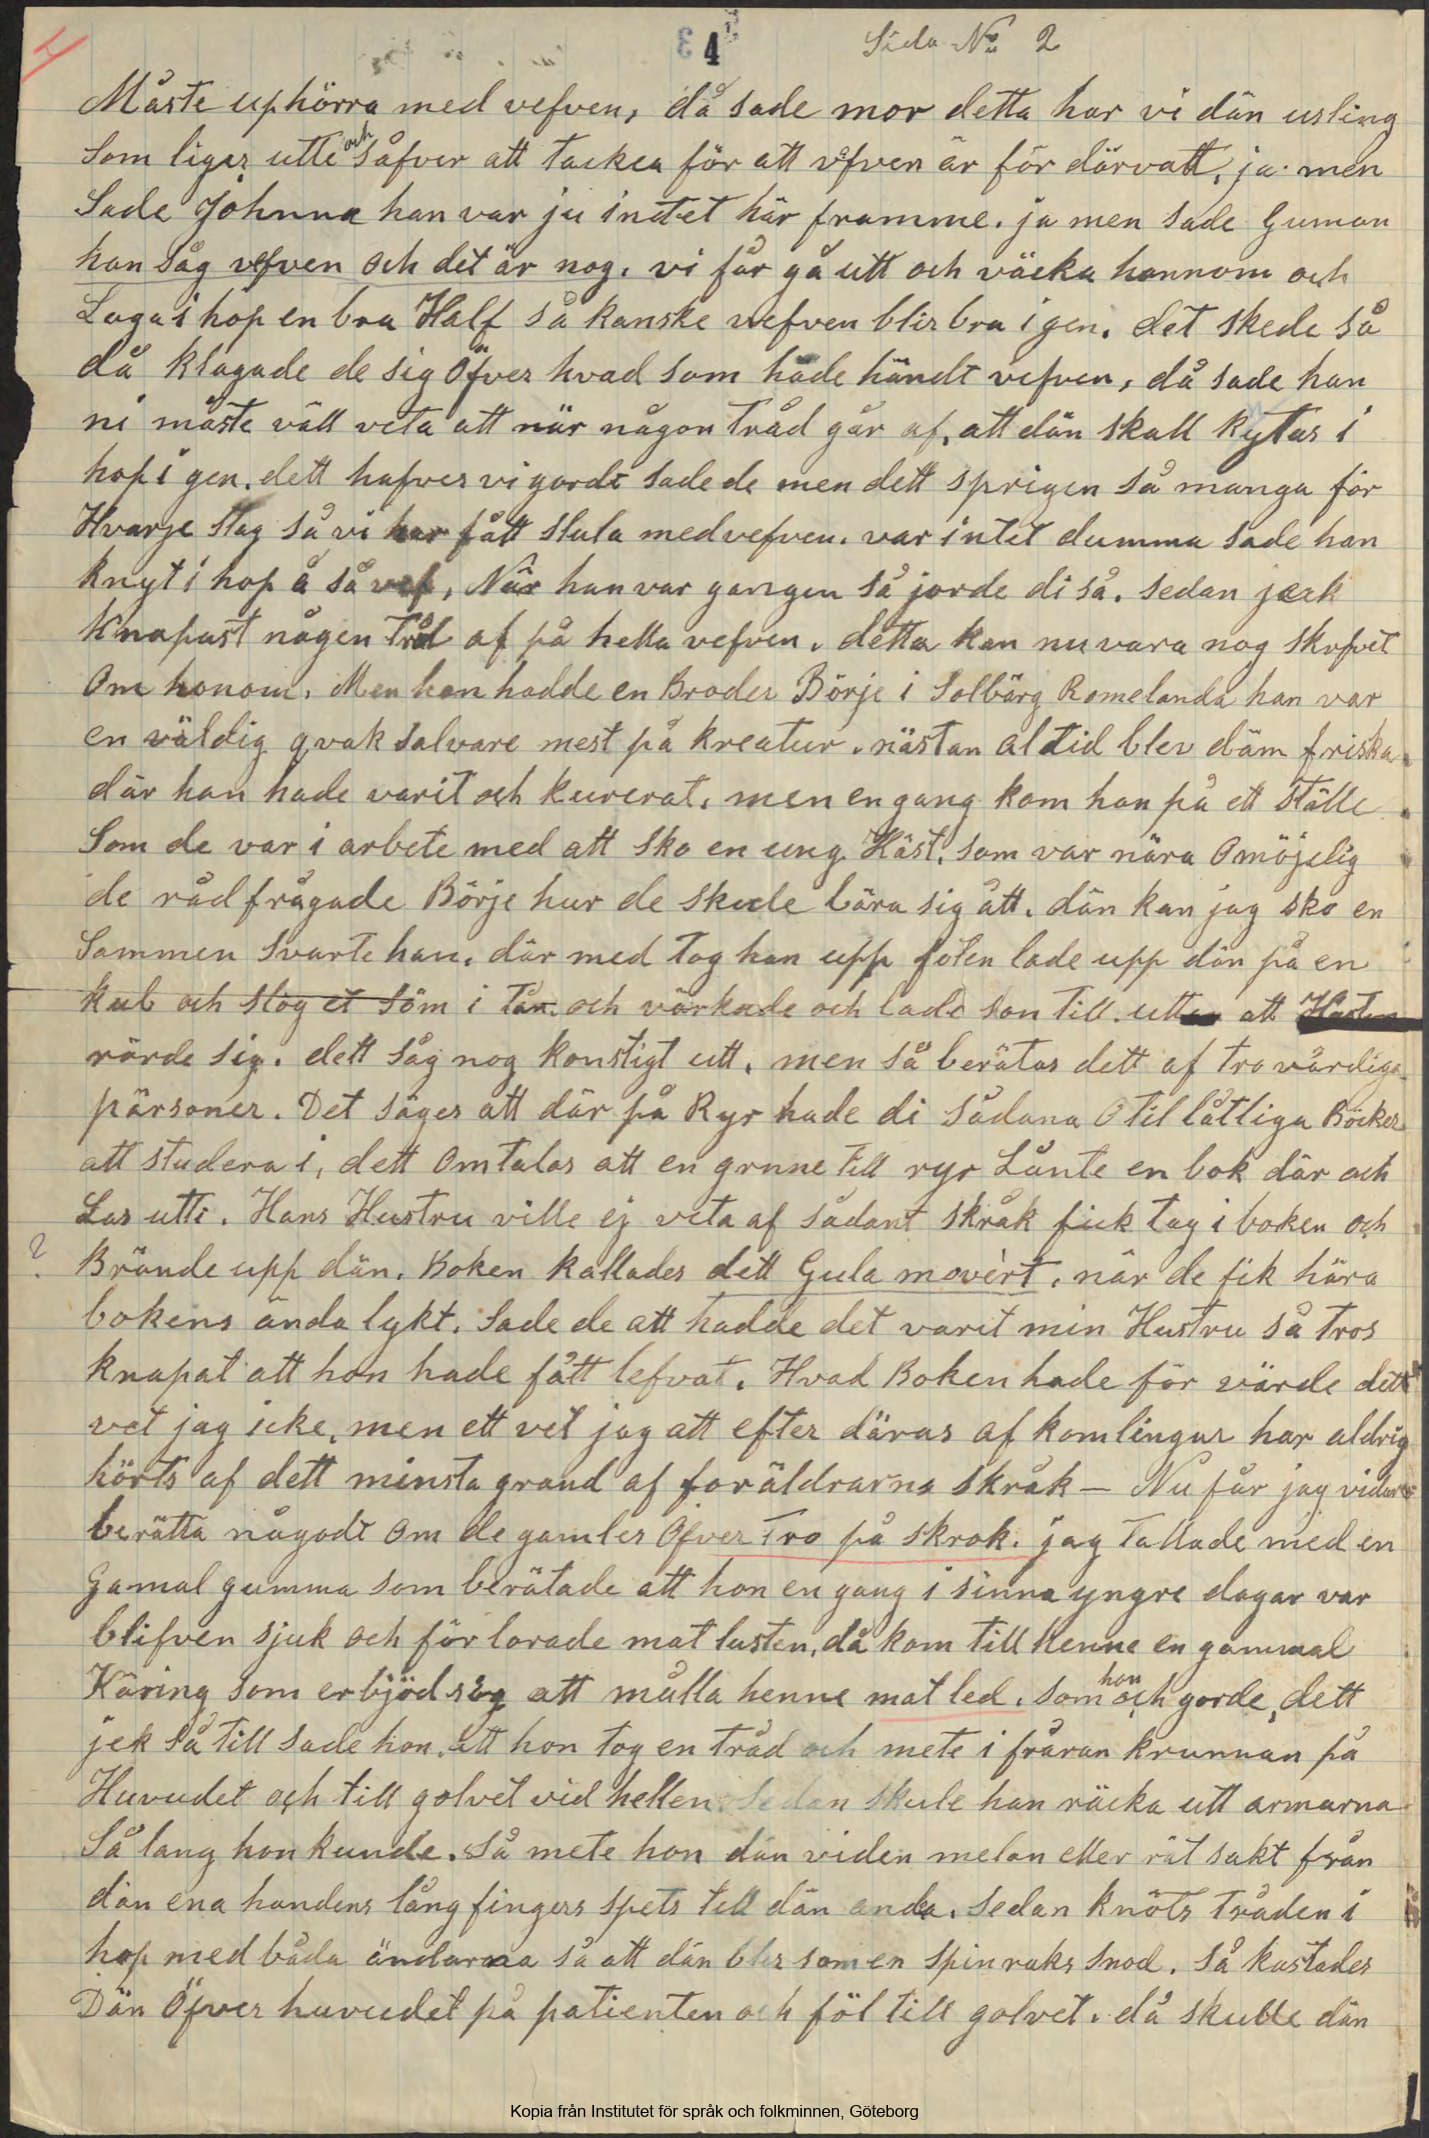 4
Sida No 2
Måste uphörra med vefven, då sade mor detta har vi dän usling
Som liger utte och såfver att tacka för att vefven är för därvatt, ja men
Sade Johnna han var ju intet här framme. ja men sade Guman
han såg vefven och det är nog. vi får gå utt och väcka honnom och
Laga i hop en bra Half så kanske vefven blir bra i gen. det skede så
då klagade de sig Öfver hvad som hade händt vefven, då sade han
ni måste väll veta att när någon tråd går af, att dän skall kytas i
hop i gen. dett hafver vi gordt sade de men dett sprigen så manga för
Hvarje slag så vi har fått sluta med vefven. var intet dumma sade han
knyt i hop å så vef, När han var gangen så jorde di så. sedan jeck
knapast någen tråd af på hella vefven. detta kan nu vara nog skrfvet
Om honom. Men han hadde en Broder Börje i Solbärg Romelanda han var
en väldig qvak salvare mest på kreatur. nästan altid blev däm friska
där han hade varit och kurerat. men en gang kom han på ett ställe
Som de var i arbete med att sko en ung Häst. som var nära Omöjelig
de råd frågade Börje hur de skule bära sig att. dän kan jag sko en
Sammen svarte han. där med tog han upp foten lade upp dän på en
kub och slog et söm i tån och värkade och lade son till. utten att Hästen
rörde sig. dett såg nog konstigt utt. men så berätas dett af tro värdiga
pärsoner. Det säges att där på Ryr hade di sådana Otil låtliga Böcker
att studera i, dett Omtalas att en granne till ryr Lånte en bok där och
Las utti. Hans Hustru ville ej veta af sådant skråk fick tag i boken och
? Brände upp dän. Boken kallades dett Gula movèrt. när de fik höra
bokens ända lykt. Sade de att hadde det varit min Hustru så tros
knapat att hon hade fått lefvat. Hvad Boken hade för värde dett
vet jag icke, men ett vet jag att efter däras af komlingar har aldrig
hörts af dett minsta grand af foräldrarna skråk — Nu får jag vidare
berätta någodt Om de gamles Öfver tro på skrok. jag tallade med en
Gamal gumma som berätade att hon en gang i sinna yngre dagar var
blifven sjuk och för lorade mat lusten, då kom till Henne en gammal
Käring som erbjöd sig att mälla henne mat led. som hon och gorde, dett
jek så till sade hon. att hon tog en tråd och mete i fråran krunnan på
Huvudet och till golvet vid hellen. Sedan skule han räcka utt armarna
Så lang hon kunde. Så mete hon dän viden melan eller rät sakt från
dän ena handens lång fingers spets till dän andra. Sedan knöts tråden i
hop med båda ändarna så att dän bler som en spinraks snod. Så kastades
Dän Öfver huvudet på patienten och föl till golvet. då skulle dän
Kopia från Institutet för språk och folkminnen, Göteborg